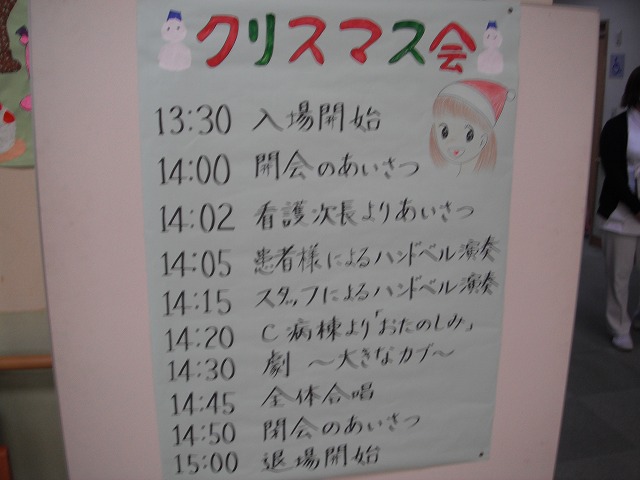 クリスマス会
13:30 入場開始
14:00 開会のあいさつ
14:02 看護次長よりあいさつ
14:05 患者様によるハンドベル演奏
14:15 スタッフによるハンドベル演奏
14:20 C病棟より「おたのしみ」
14:30 劇 〜大きなカブ〜
14:45 全体合唱
14:50 閉会のあいさつ
15:00 退場開始